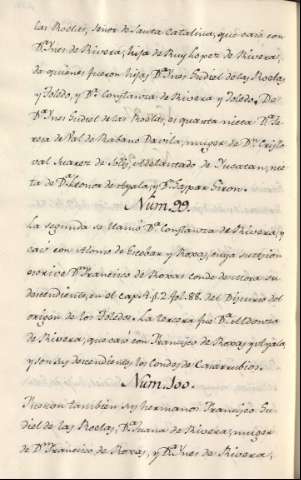 las Roelas, señor de Santa Catalina, que casó con
Dª. Ines de Rivera, hija de Ruy Lopez de Rivera,
de quienes fueron hijas Dª. Ines Gudiel de las Roelas
y Toledo, y Dª. Constanza de Rivera y Toledo. De
Dª. Ines Gudiel de las Roelas, es quarta nieta Dª. Te-
resa de Val de Rabano Davila, muger de Dn. Cristo-
val Suarez de Adelantado de Yucatan, nie-
ta de Dª. Leonor de Ayala, y Dn. Gaspar Giron.
Num. 99.
La segunda se llamó Dª. Constanza de Rivera, y
casó con Alonso de Escobar y Roxas, cuya succesion
escrive Dn. Francisco de Roxas conde de Mora su
descendiente, en el cap. 4. §. 2. fol. 88. del Discurso del
origen de los Toledos. La tercera fue Dª. Aldonza
de Rivera, que casó con Francisco de Roxas y Ayala,
y son sus descendientes los Condes de Casarrubios.
Num. 100.
Fueron tambien sus hermanos Francisco Gu-
diel de las Roelas, Dª. Juana de Rivera, muger
de Dn. Francisco de Roxas, y Dª. Ines de Rivera,